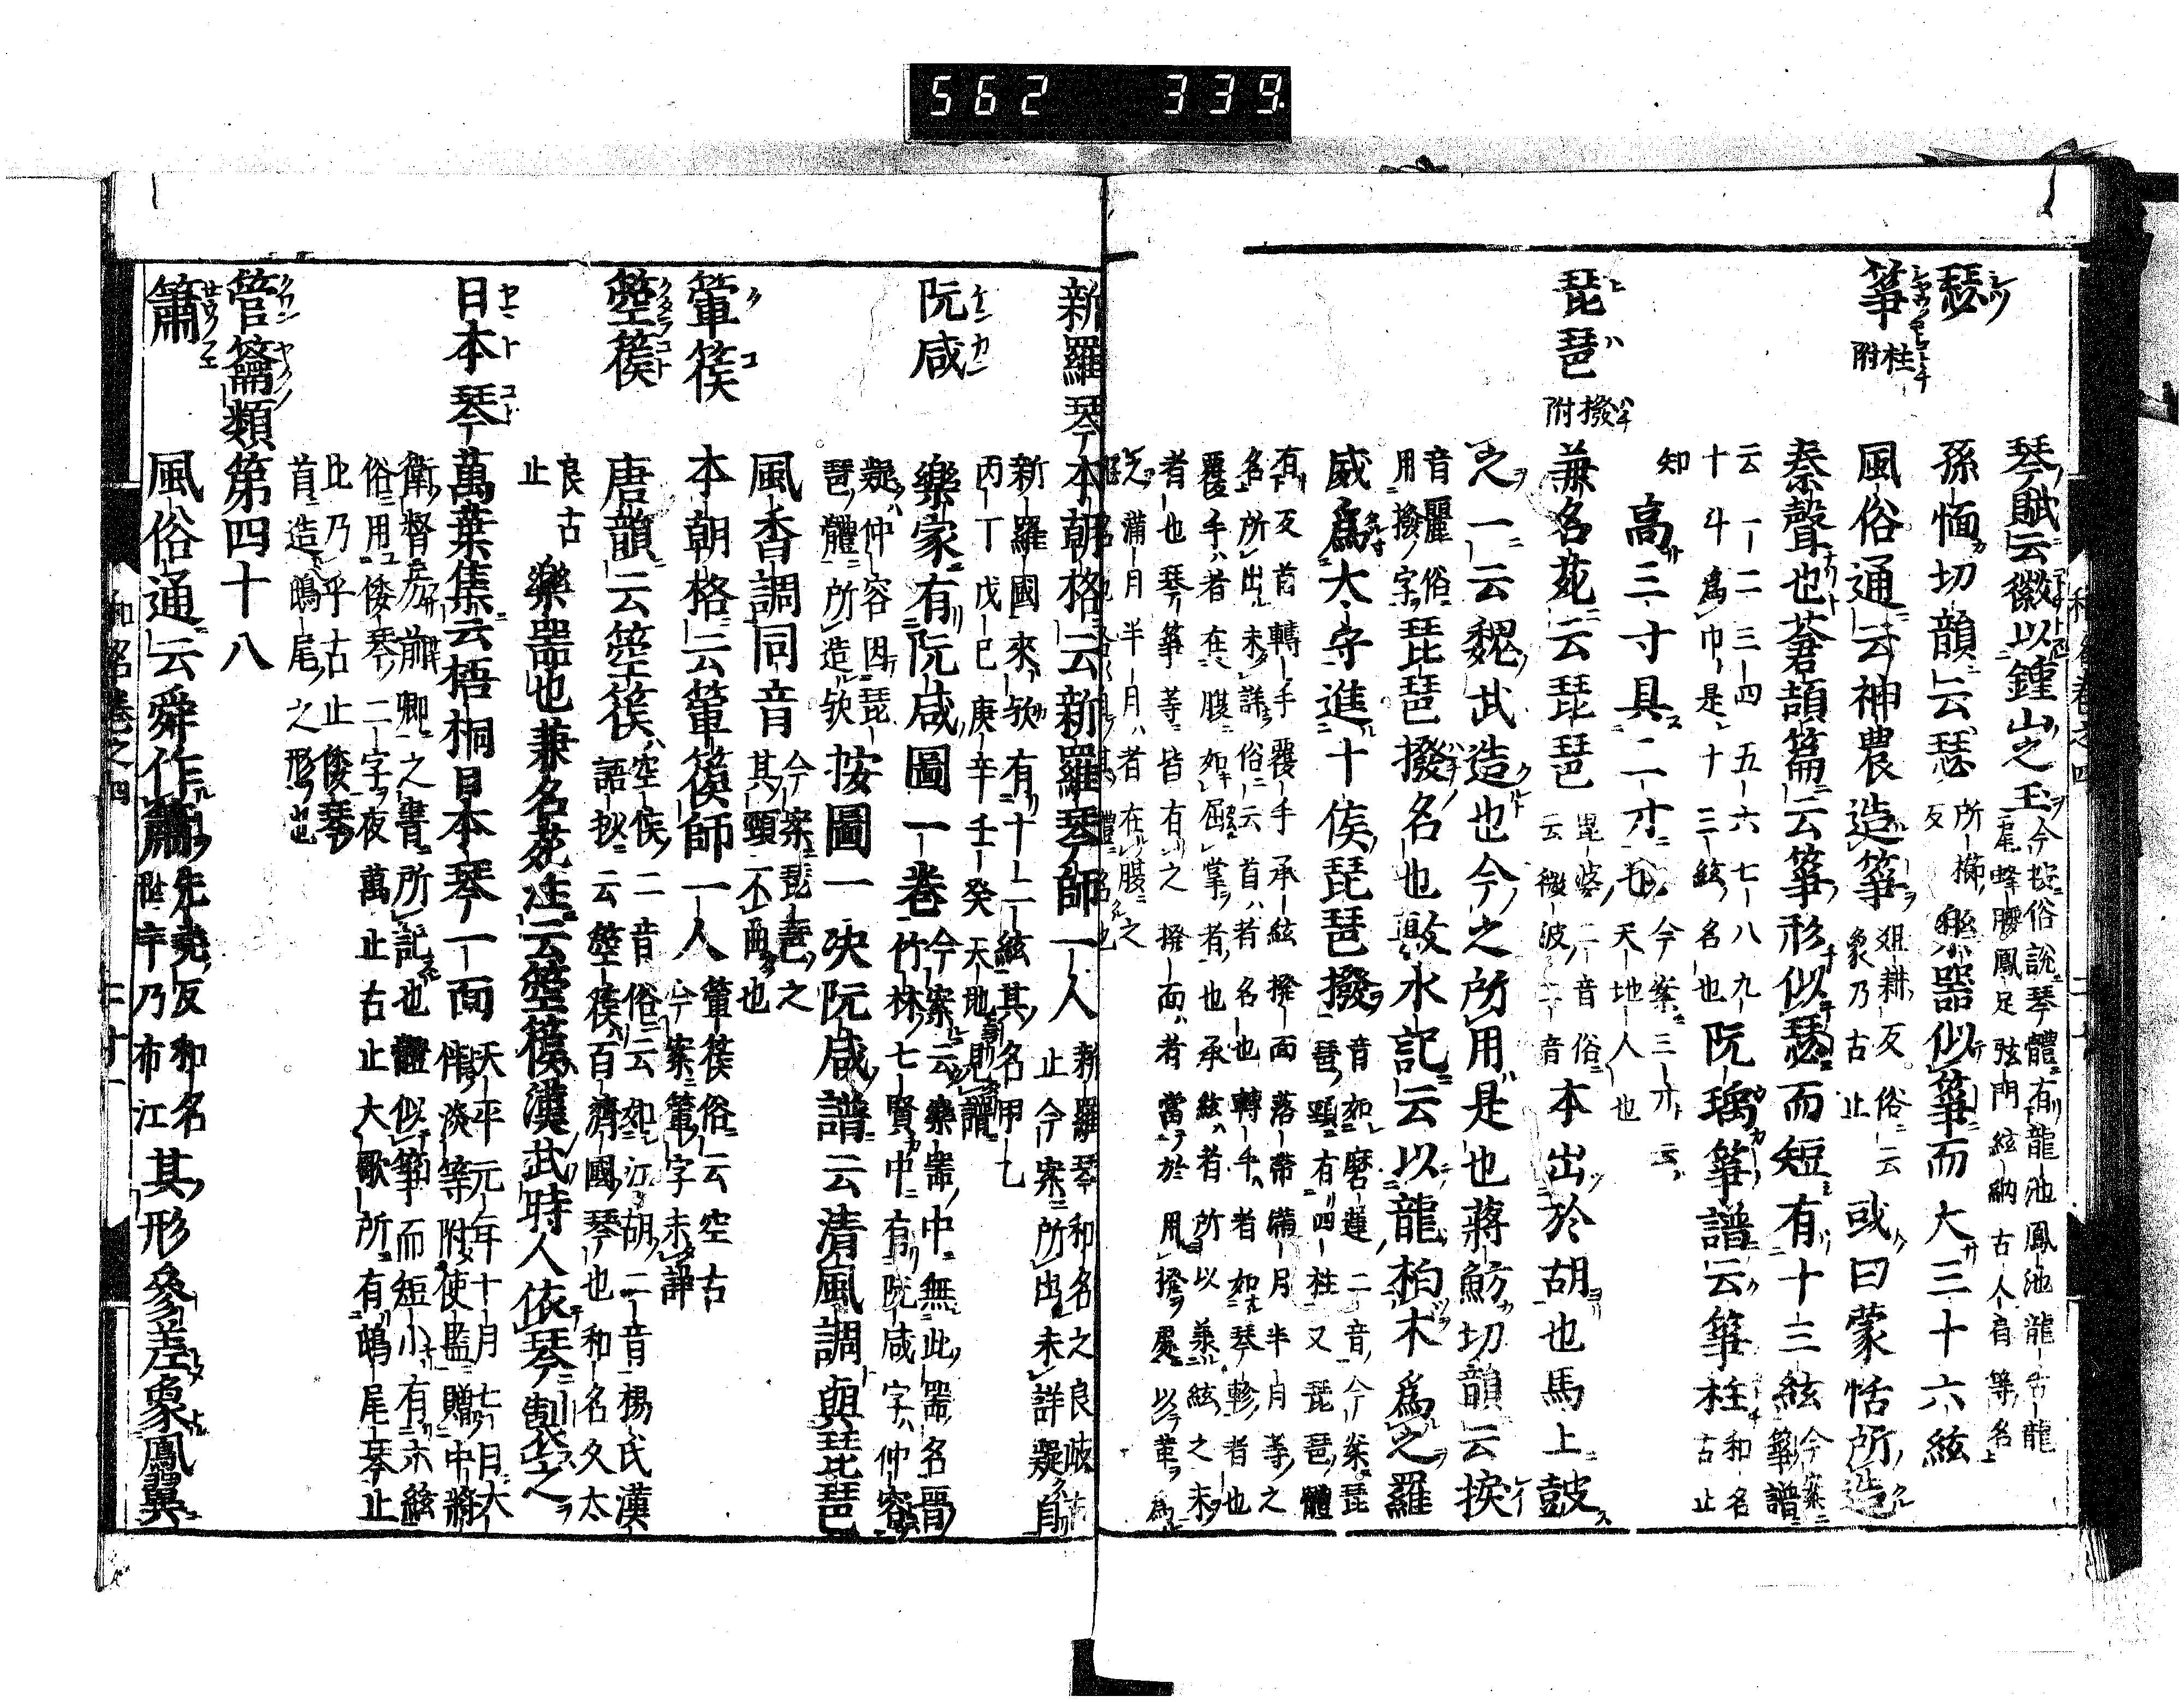 562 339
琴賦云徽以鍾山之玉今按俗說琴體有龍池鳳池龍舌龍
尾蜂腰鳳足弦門絃納古人肩等名
瑟
孫愐切韻云瑟所櫛反樂器似箏而大三十六絃
箏柱附
風俗通云神農造箏爼耕反俗云象乃古止或曰蒙恬所造
秦聲也蒼頡篇云箏形似瑟而短有十三絃今案箏譜
云一二三四五六七八九
十斗為巾是十三絃名也阮瑀箏譜云箏柱和名古止
知高三寸具二才也今案三才云天地人也
琵琶撥附
兼名苑云琵琶毘婆二音俗云微波二音本出於胡也馬上鼓
之一云魏武造也今之所用是也蔣魴切韻云捩
音麗俗用撥字琵琶撥名也敢水記云以龍柏木為之羅
威為大守進十侯琵琶撥
音如磨蓮二音今案琵琶頸有四柱又琵琶體
有反首轉手覆手承絃撥面落帶滿月半月等之
名所出未詳俗云首者名也轉手者如琴軫者也
覆手者在腹如屈掌者也承絃者所以承絃之末
者也琴箏等皆有之撥面者當於用撥處以革為
之滿月半月者在腹之
新羅琴
本朝格云新羅琴師一人新羅琴和名之良岐古
止今案所出未詳疑自
新羅國來欤有十二絃其名甲乙
丙丁戊己庚辛壬癸天地見譜
阮咸
樂家有阮咸圖一卷今案云樂器中無此器名晋
竹林七賢中有阮咸字仲容
疑仲容因琵琶體所造欤按圖一決阮咸譜云清風調與琵琶
風香調同音今案琵琶之其頸不曲也
箜篌
本朝格云箜篌師一人箜篌俗云空古今案箜字未詳
箜篌
唐韻云箜篌空侯二音俗云如江胡二音楊氏漢
語抄云箜篌百濟國琴也和名久太
良古止樂器也兼名苑注云箜篌漢武時人依琴製之
日本琴
萬葉集云梧桐日本琴一面天平元年十月七日大
伴淡等附使監贈中將
衛督房前卿之書所記也體似箏而短小有六絃
俗用倭琴二字夜萬止古止大歌所有鵄尾琴止
比乃乎古止倭琴
首造鵄尾之形也
管籥類第四十八
簫
風俗通云舜作簫先堯反和名世宇乃布江其形參差象鳳翼
和名卷之四